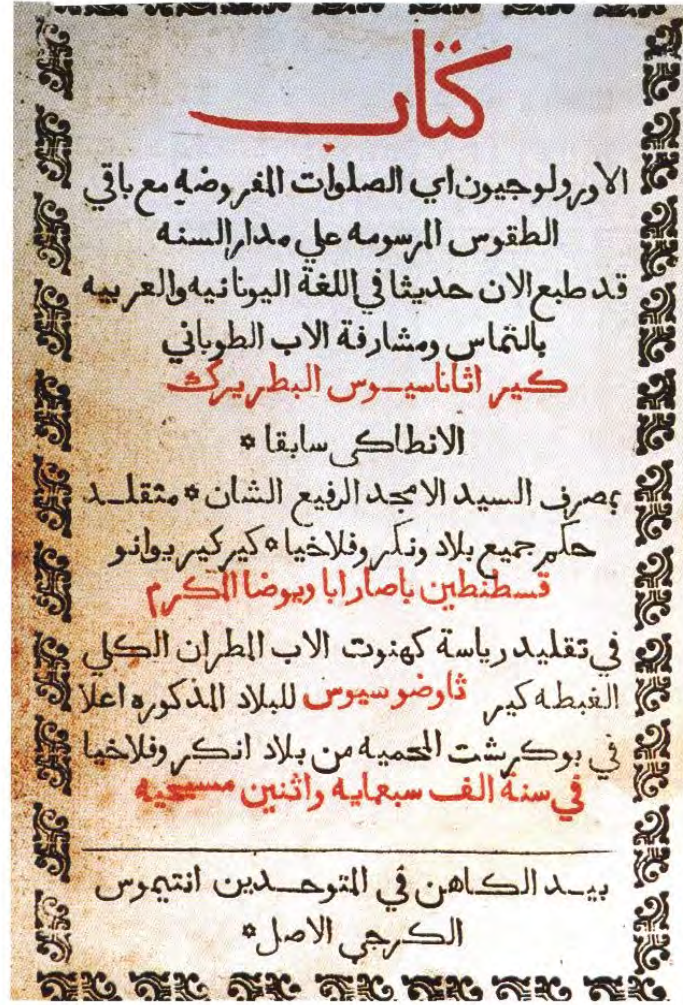 كتاب
الاورولوجيون اي الصلوات المفروضه مع باقي
الطقوس المرسومه علي مدار السنه
قد طبع الان حديثا في اللغة اليونانيه والعربيه
بالتماس ومشارفة الاب الطوباني
كير اثاناسيوس البطريرك
الانطاكي سابقا *
بمصرف السيد الامجد الرفيع الشان * متقلد
حكم جميع بلاد ونكروفلاخيا * كير كير يوانو
قسطنطين باصارابا ويوضا المكرم
في تقليد رياسة كهنوت الاب المطران الكلي
الغبطه كير ثاوضوسيوس للبلاد المذكوره اعلا
في بوكرشت المحميه من بلاد انكروفلاخيا
في سنة الف سبعمايه واثنين مسيحيه
بيد الكاهن في المتوحدين انتيموس
الكرجي الاصل *